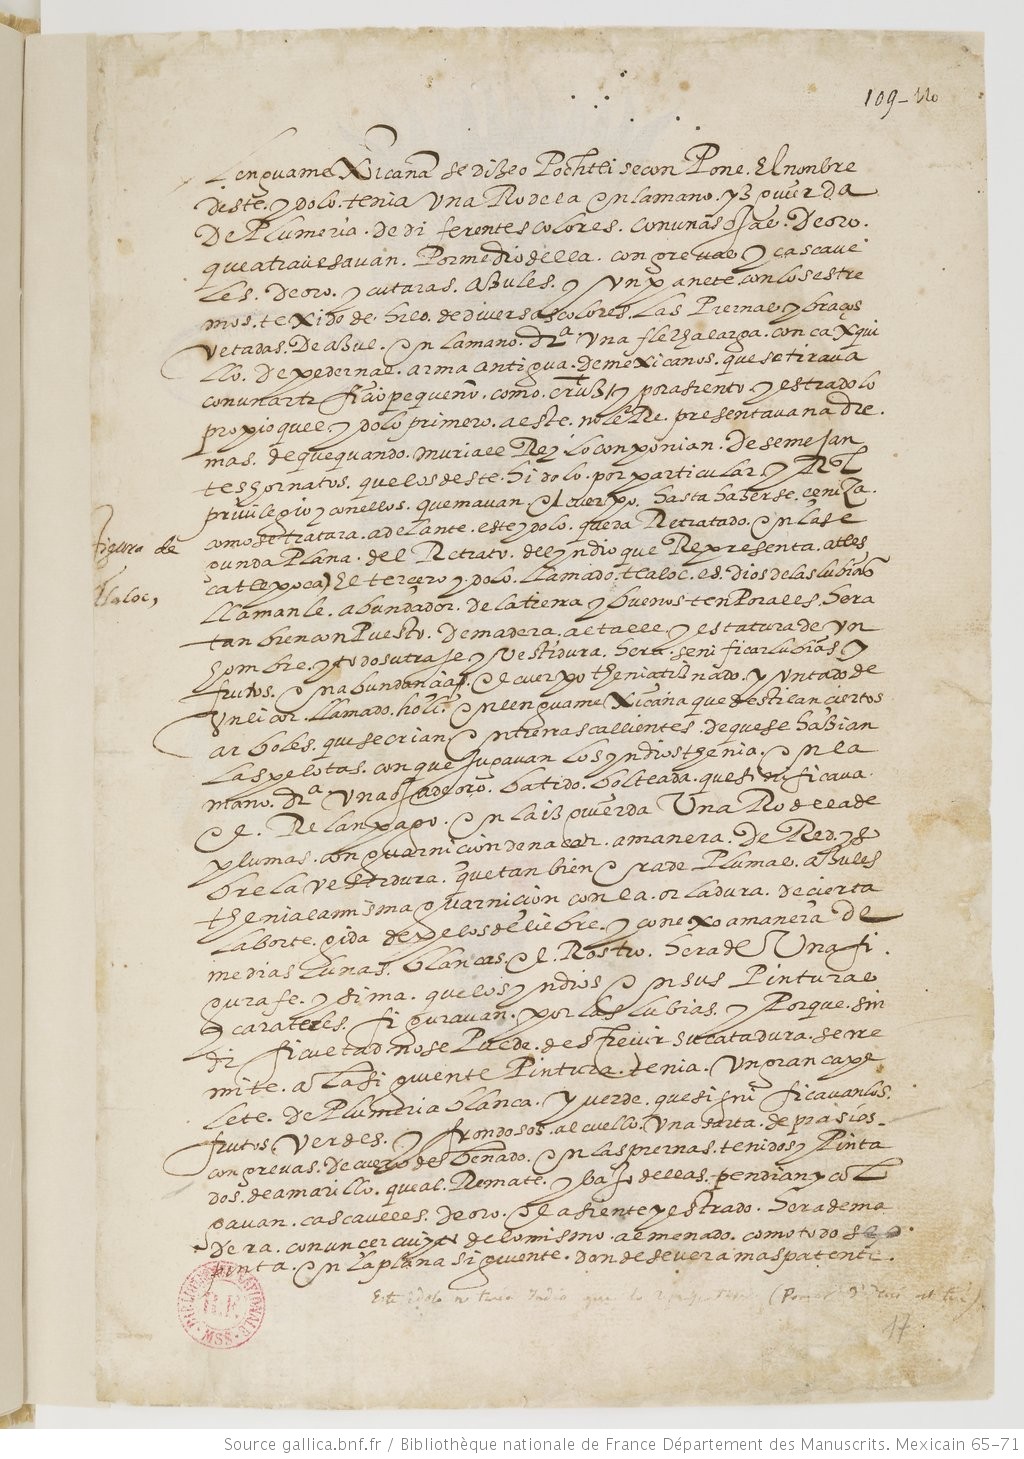 109-110
Lenguamexicana se dize o Pochtli secon Pone. El nonbre
deste. ydolo. tenia una Rodela enlamano. yzquerda
De Plumeria. de diferentes colores. con unas ojas. De oro.
que atrauesauan. Por medio della. con greuas y cascaue
les. De oro. y cutaras. azules. y un panete con los estre
mos. texido de. hilo. de diversas colores. las Piernas y braços
vetadas. De azul. en lamano. dra una flecha larga. con caxqui
llo. De pedernal. arma antigua. de mexicanos. que se tiraua
con un artificio pequeño. como. y por asiento. y estrado lo
propio que el ydolo primero. a este. no le presentauan adre
mas. de que quando. muria el Rey lo conponian. De semejan
tes hornatos. que los deste. hidolo. por particular. y Rl
priuilegio y con ellos. quemauan el cuerpo. hasta hazerse. ceniza.
como se tratara. adelante. este ydolo. queda Retratado. en la se
gunda Plana. del Retrato. del yndio que Representa. a tes
catlepoca) El tercero ydolo. llamado. tlaloc. es. Dios de las lubias
llamanle. abundador. de la tierra y buenos tenPorales. hera
tanbien conPuesto. De madera. al talle y estatura de un
honbre. y todo su traje y vestidura. hera. senificar lubias y
frutos. en abundancia. el cuerpo thenia tiznado. y untado de
un licor. llamado. holli. en lengua mexicana que destilan ciertos
arboles. que se crian. en tierras callientes. de que se hazian
las pelotas. con que jugauan los yndios thenia. en la
mano. dra una oja de oro. batido. bolteada. que sinificaua
el. Relanpago. en la izquerda una Rodela de
plumas. con guarnicion de nacar. a manera. De Red. y so
bre la vestidura. que tanbien era de Plumas. azules
thenia la misma guarnicion con la orladura. de cierta
labor te gida de pelos de liebre. y conexo a manera de
medias lunas. blancas. el. Rostro. hera de una fi
gura fe. ysima. que los yndios en sus Pinturas
y carateres. figurauan. por las lubias. y Porque. sin
dificultad no se Puede. descreuir su catadura. se rre
mite. a la siguente Pintura) tenia. un gran cape
lete. De Plumeria blanca. y uerde. que significauan los
frutos verdes. y frondosos. al cuello. una sarta. de prasios.
con greuas. De cuero de benado. en las piernas. tenidos y Pinta
dos. de amarillo. que al. Remate. y bajo dellas. pendian y col
gauan. cascaueles. de oro. el asiente y estrado. hera de ma
dera. con un cercuyto de lo mismo. almenado. como todo se
pinta. en la plana siguente. donde se vera mas patente.
Figura de
Tlaloc,
Este idolo no tiene Indio que lo
17
BIBLIOTHEQUE NATIONALE
MSS
Source gallica.bnf.fr / Bibliothèque nationale de France Département des Manuscrits. Mexicain 65-71